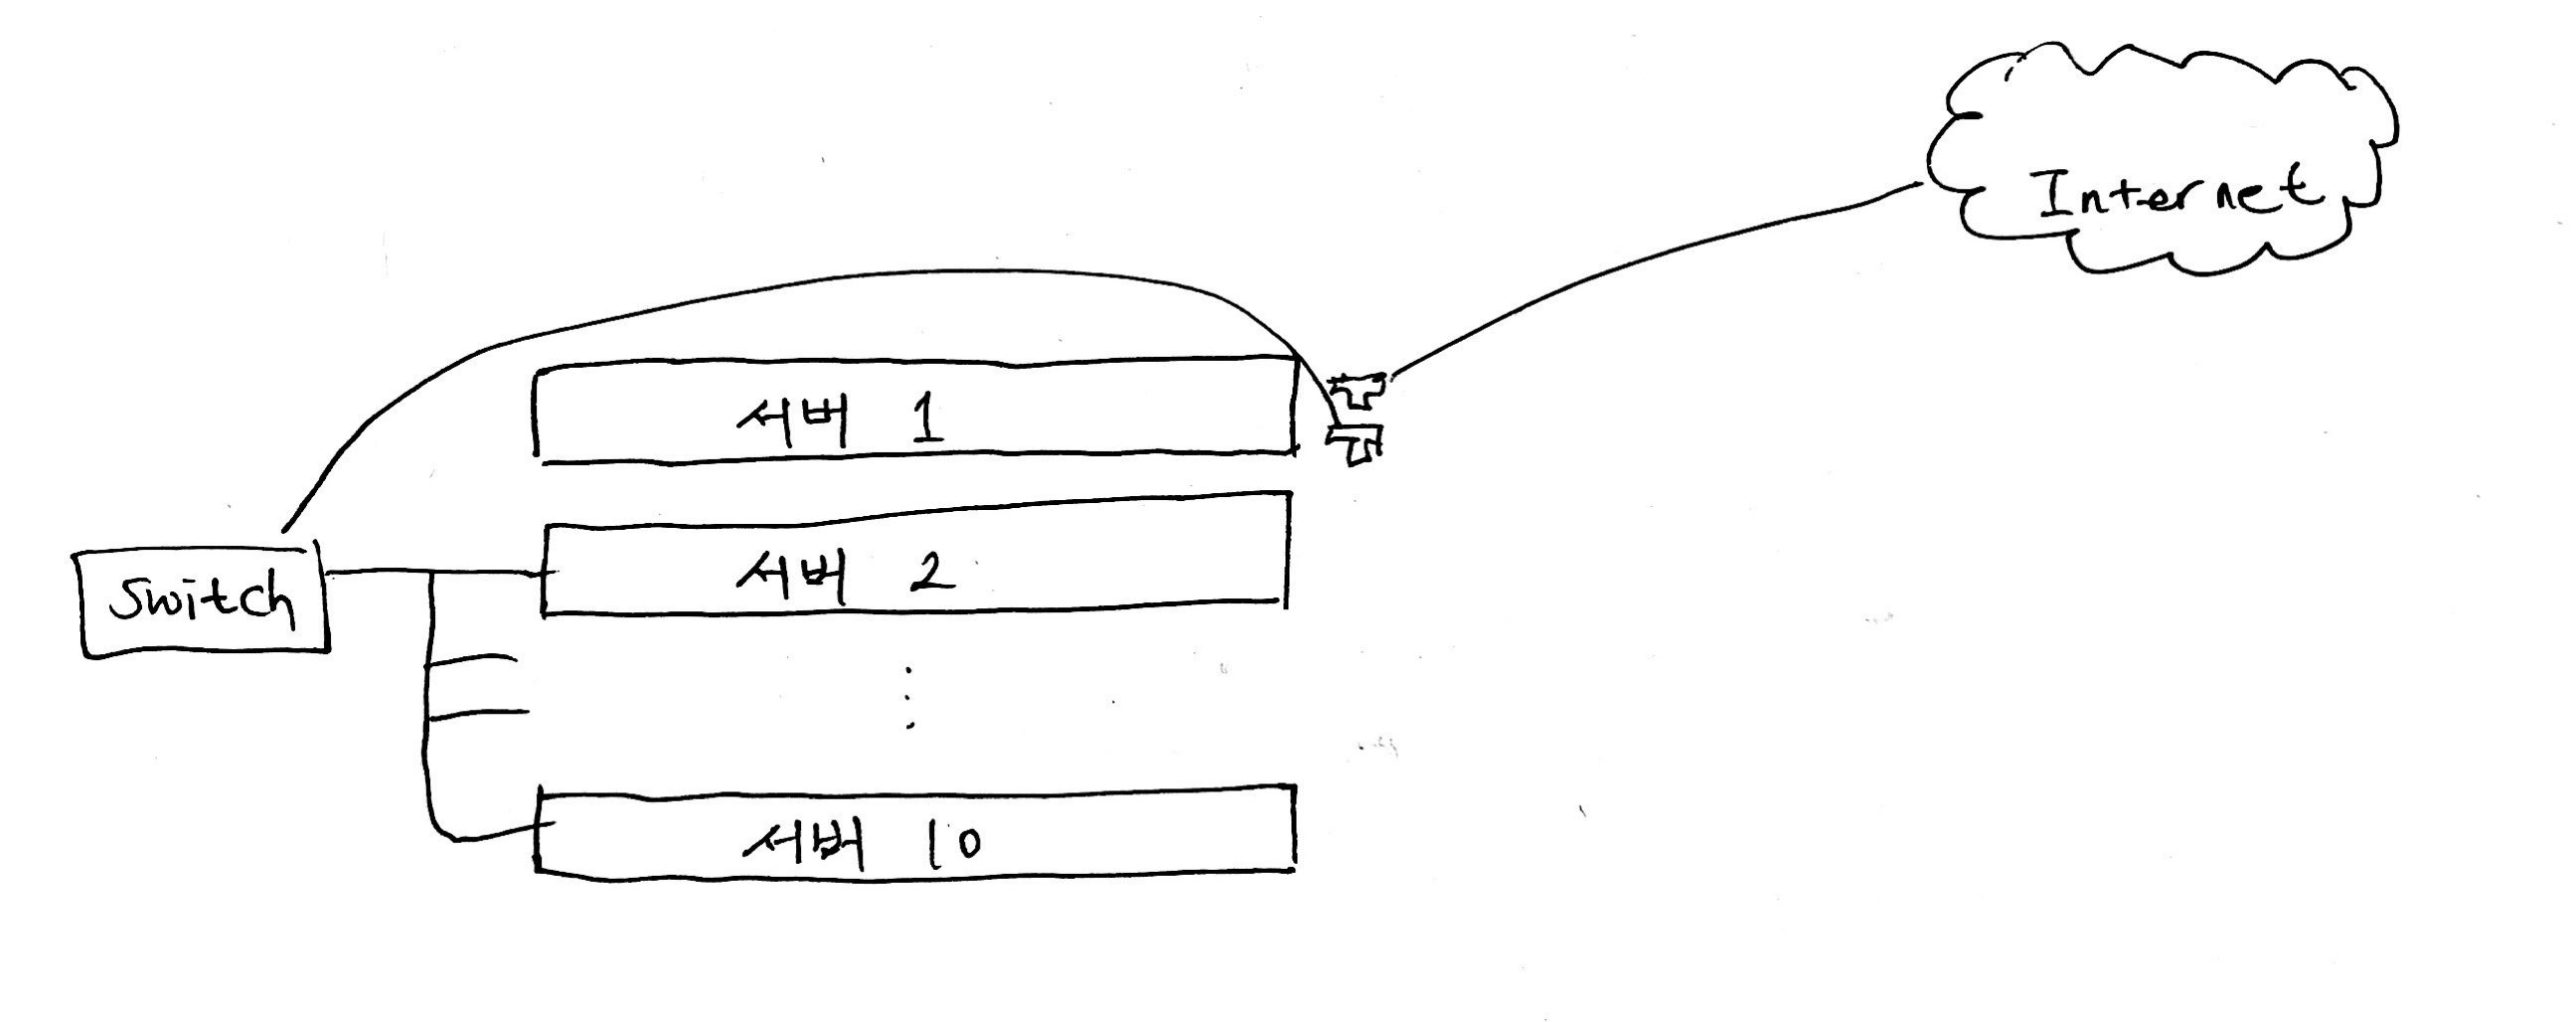 Internet
서버 1
Switch
서버 2
서버 10